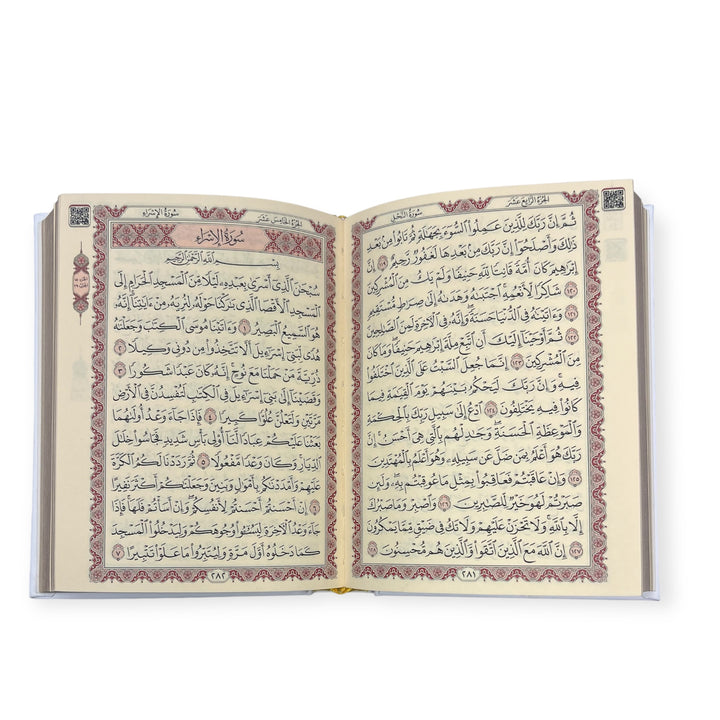 الجزء الرابع عشر
سورة النحل
ثُمَّ إِنَّ رَبَّكَ لِلَّذِينَ عَمِلُوا۟ ٱلسُّوٓءَ بِجَهَٰلَةٍ ثُمَّ تَابُوا۟ مِنۢ بَعْدِ
ذَٰلِكَ وَأَصْلَحُوٓا۟ إِنَّ رَبَّكَ مِنۢ بَعْدِهَا لَغَفُورٌ رَّحِيمٌ ١١٩ إِنَّ
إِبْرَٰهِيمَ كَانَ أُمَّةً قَانِتًا لِّلَّهِ حَنِيفًا وَلَمْ يَكُ مِنَ ٱلْمُشْرِكِينَ
١٢٠ شَاكِرًا لِّأَنْعُمِهِ ٱجْتَبَىٰهُ وَهَدَىٰهُ إِلَىٰ صِرَٰطٍ مُّسْتَقِيمٍ
١٢١ وَءَاتَيْنَٰهُ فِى ٱلدُّنْيَا حَسَنَةً وَإِنَّهُۥ فِى ٱلْءَاخِرَةِ لَمِنَ ٱلصَّٰلِحِينَ
١٢٢ ثُمَّ أَوْحَيْنَآ إِلَيْكَ أَنِ ٱتَّبِعْ مِلَّةَ إِبْرَٰهِيمَ حَنِيفًا وَمَا كَانَ
مِنَ ٱلْمُشْرِكِينَ ١٢٣ إِنَّمَا جُعِلَ ٱلسَّبْتُ عَلَى ٱلَّذِينَ ٱخْتَلَفُوا۟
فِيهِ وَإِنَّ رَبَّكَ لَيَحْكُمُ بَيْنَهُمْ يَوْمَ ٱلْقِيَٰمَةِ فِيمَا
كَانُوا۟ فِيهِ يَخْتَلِفُونَ ١٢٤ ٱدْعُ إِلَىٰ سَبِيلِ رَبِّكَ بِٱلْحِكْمَةِ
وَٱلْمَوْعِظَةِ ٱلْحَسَنَةِ وَجَٰدِلْهُم بِٱلَّتِى هِىَ أَحْسَنُ إِنَّ
رَبَّكَ هُوَ أَعْلَمُ بِمَن ضَلَّ عَن سَبِيلِهِۦ وَهُوَ أَعْلَمُ بِٱلْمُهْتَدِينَ
١٢٥ وَإِنْ عَاقَبْتُمْ فَعَاقِبُوا۟ بِمِثْلِ مَا عُوقِبْتُم بِهِۦ وَلَئِن
صَبَرْتُمْ لَهُوَ خَيْرٌ لِّلصَّٰبِرِينَ ١٢٦ وَٱصْبِرْ وَمَا صَبْرُكَ
إِلَّا بِٱللَّهِ وَلَا تَحْزَنْ عَلَيْهِمْ وَلَا تَكُ فِى ضَيْقٍ مِّمَّا يَمْكُرُونَ
١٢٧ إِنَّ ٱللَّهَ مَعَ ٱلَّذِينَ ٱتَّقَوا۟ وَّٱلَّذِينَ هُم مُّحْسِنُونَ ١٢٨
٢٨١
الجزء الخامس عشر
سورة الإسراء
سورة الإسراء
بِسْمِ ٱللَّهِ ٱلرَّحْمَٰنِ ٱلرَّحِيمِ
سُبْحَٰنَ ٱلَّذِىٓ أَسْرَىٰ بِعَبْدِهِۦ لَيْلًا مِّنَ ٱلْمَسْجِدِ ٱلْحَرَامِ إِلَى
ٱلْمَسْجِدِ ٱلْأَقْصَا ٱلَّذِى بَٰرَكْنَا حَوْلَهُۥ لِنُرِيَهُۥ مِنْ ءَايَٰتِنَآ إِنَّهُۥ
هُوَ ٱلسَّمِيعُ ٱلْبَصِيرُ ١ وَءَاتَيْنَا مُوسَى ٱلْكِتَٰبَ وَجَعَلْنَٰهُ
هُدًى لِّبَنِىٓ إِسْرَٰٓءِيلَ أَلَّا تَتَّخِذُوا۟ مِن دُونِى وَكِيلًا ٢
ذُرِّيَّةَ مَنْ حَمَلْنَا مَعَ نُوحٍ إِنَّهُۥ كَانَ عَبْدًا شَكُورًا ٣
وَقَضَيْنَآ إِلَىٰ بَنِىٓ إِسْرَٰٓءِيلَ فِى ٱلْكِتَٰبِ لَتُفْسِدُنَّ فِى ٱلْأَرْضِ
مَرَّتَيْنِ وَلَتَعْلُنَّ عُلُوًّا كَبِيرًا ٤ فَإِذَا جَآءَ وَعْدُ أُولَىٰهُمَا
بَعَثْنَا عَلَيْكُمْ عِبَادًا لَّنَآ أُو۟لِى بَأْسٍ شَدِيدٍ فَجَاسُوا۟ خِلَٰلَ
ٱلدِّيَارِ وَكَانَ وَعْدًا مَّفْعُولًا ٥ ثُمَّ رَدَدْنَا لَكُمُ ٱلْكَرَّةَ
عَلَيْهِمْ وَأَمْدَدْنَٰكُم بِأَمْوَٰلٍ وَبَنِينَ وَجَعَلْنَٰكُمْ أَكْثَرَ نَفِيرًا
٦ إِنْ أَحْسَنتُمْ أَحْسَنتُمْ لِأَنفُسِكُمْ وَإِنْ أَسَأْتُمْ فَلَهَا فَإِذَا
جَآءَ وَعْدُ ٱلْءَاخِرَةِ لِيَسُۥٓـُٔوا۟ وُجُوهَكُمْ وَلِيَدْخُلُوا۟ ٱلْمَسْجِدَ
كَمَا دَخَلُوهُ أَوَّلَ مَرَّةٍ وَلِيُتَبِّرُوا۟ مَا عَلَوْا۟ تَتْبِيرًا ٧
٢٨٢